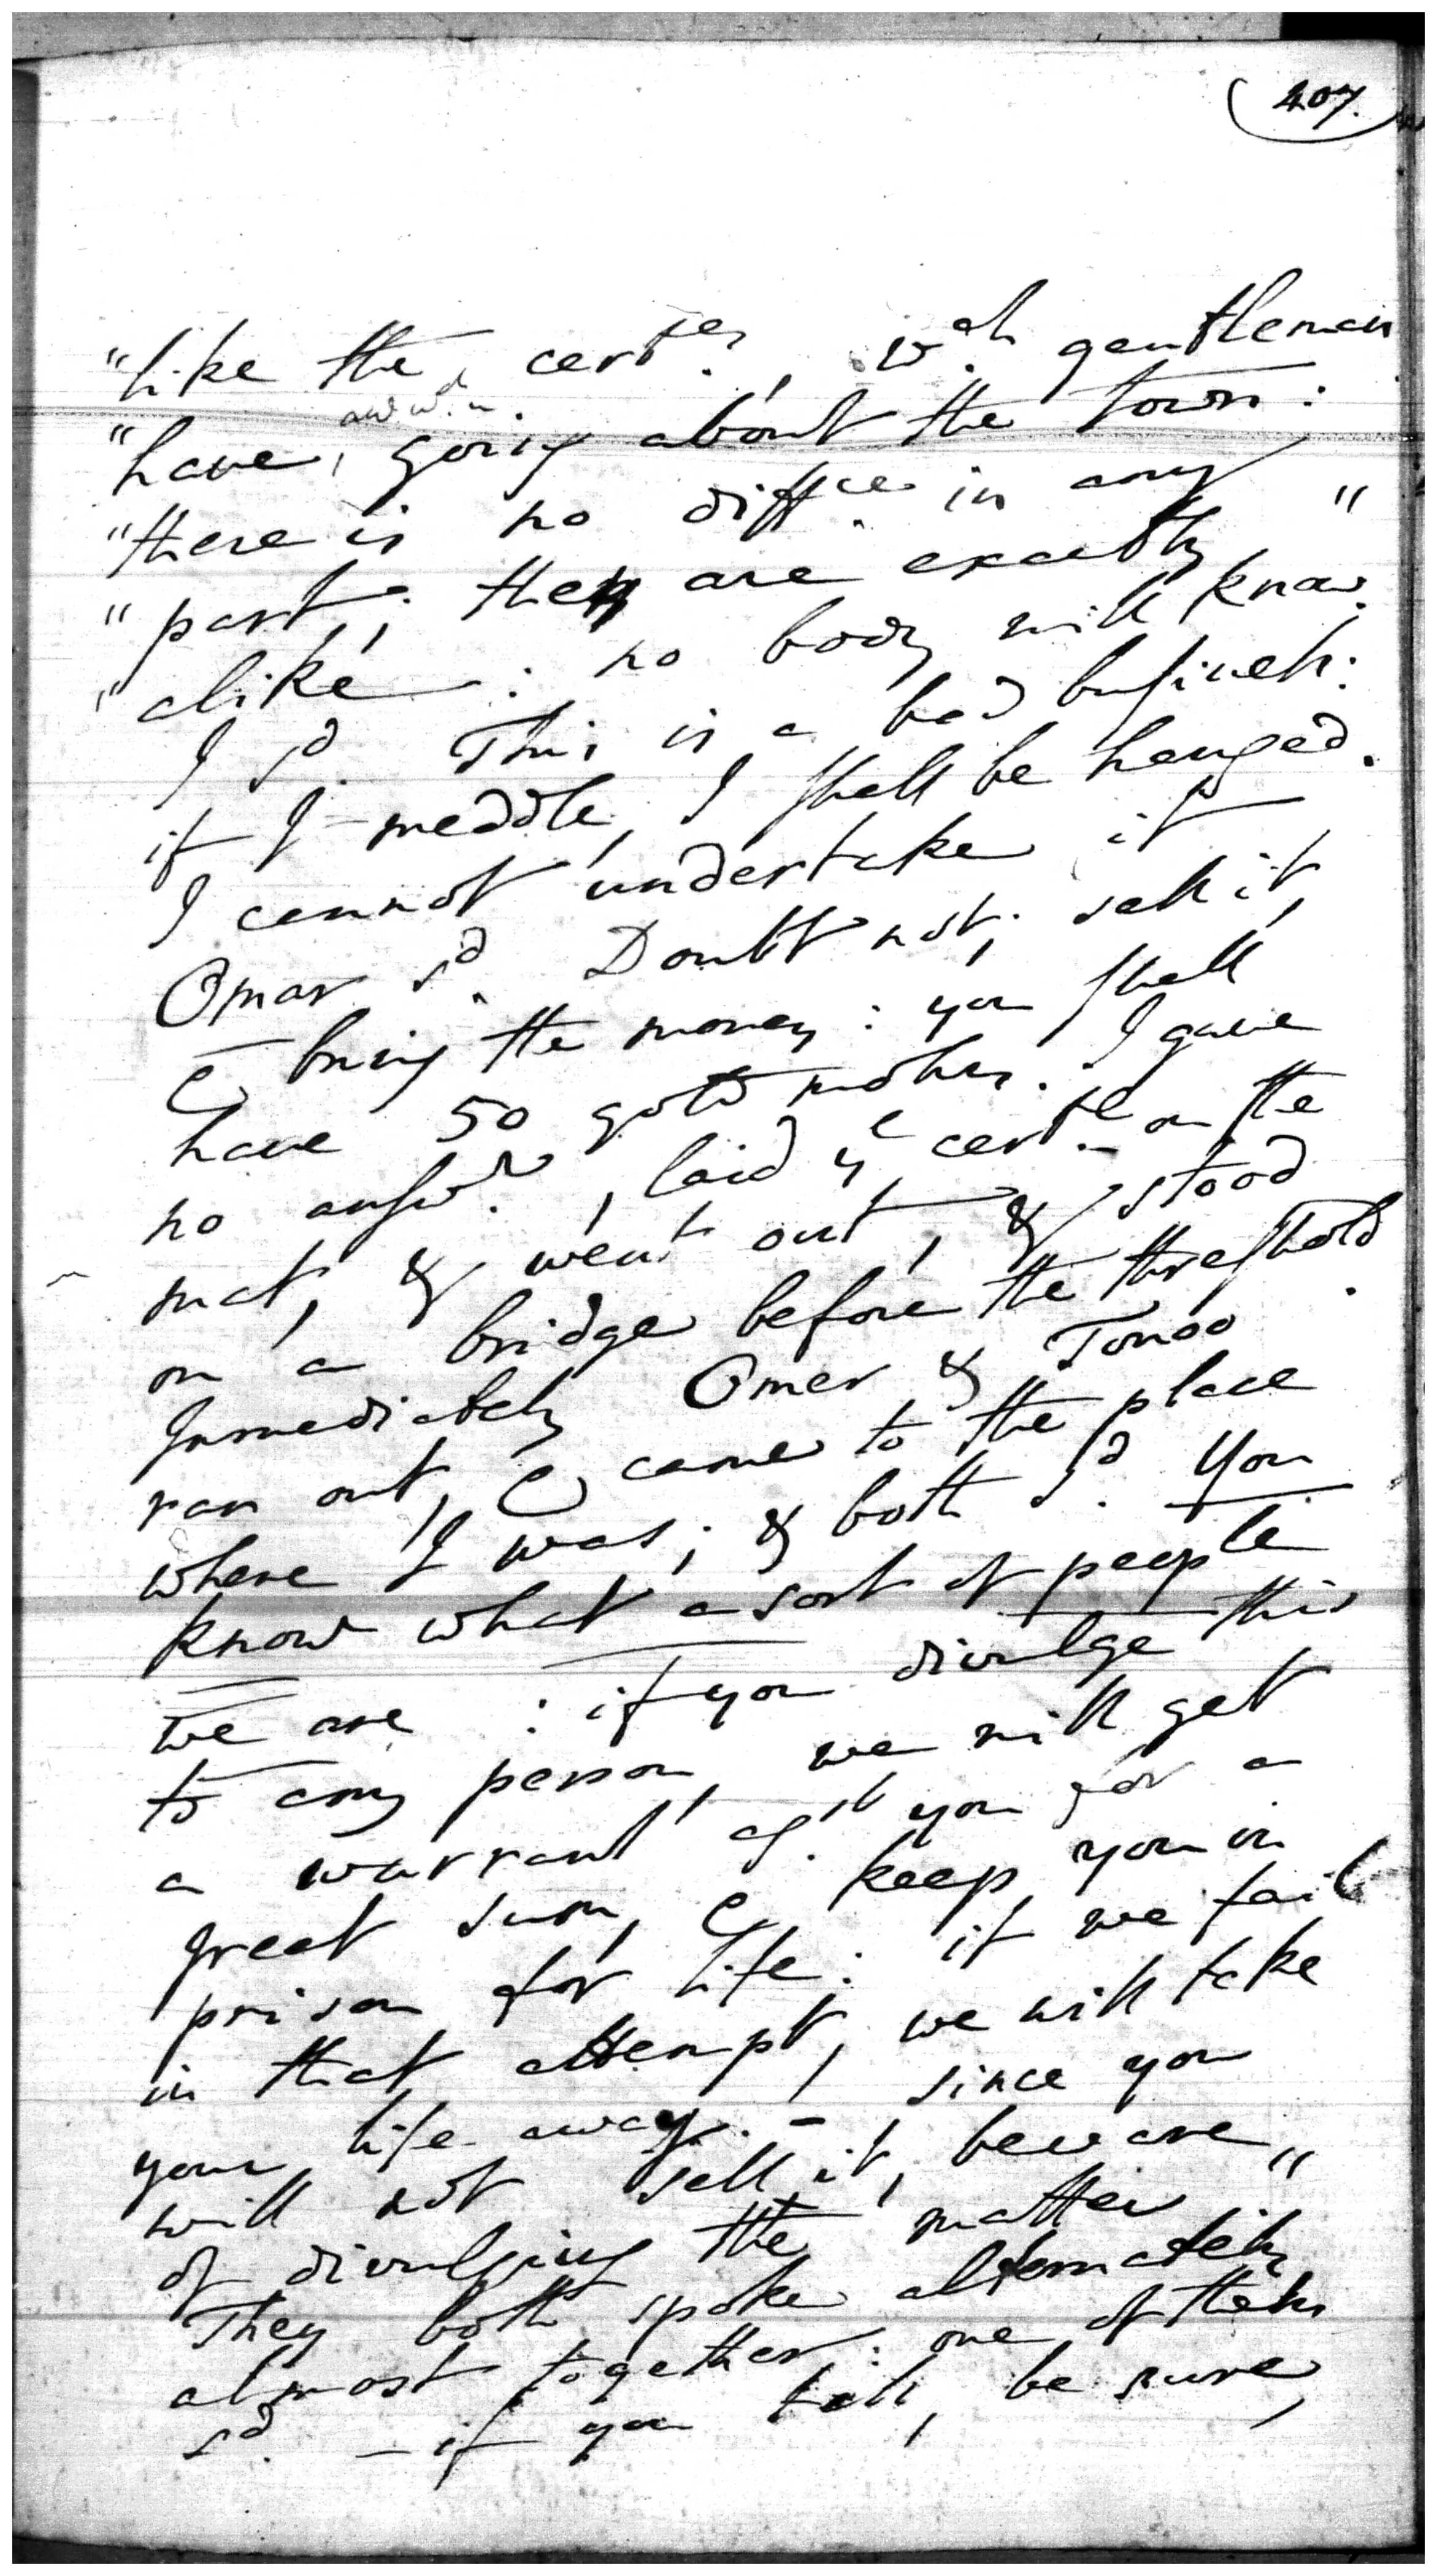 407.
"like the certes., wch. gentleman
"have, going about the town:
"there is no diffce. in any
"part; they are exactly "
"alike: no body will know.
I sd. This is a bad business:
if I meddle, I shall be hanged.
I cannot undertake it
Omar sd. Doubt not; sell it,
& bring the money: you shall
have 50 gold mohrs. I gave
no answr., laid ye certe. on the
mat, & went out, & stood
on a bridge before the threshold.
Immediately Omer & Tonoo
ran out, & came to the place
where I was; & both sd. You
know what a sort of people
we are: if you divulge this
to any person, we will get
a warrant agt. you for a
great sum, & keep you in
prison for life: if we fail
in that attempt, we will take
your life away. - since you
will not sell it, beware "
of divulging the matter
They both spoke alternately
almost together: one of them
sd. - if you tell, be sure,